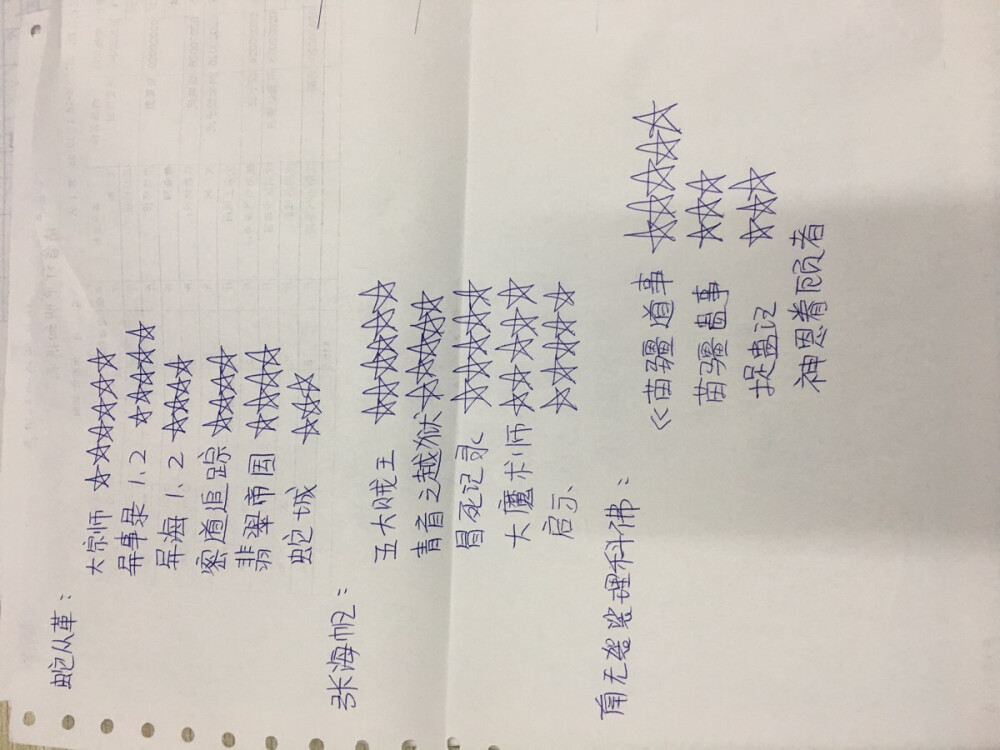 蛇从革：
大宗师
异事录 1、2
异海 1、2
密道追踪
翡翠帝国
蛇城
张海帆：
五大贼王
青盲之越狱
冒死记录
大魔术师
启示、
南无袈裟理科佛：
《苗疆道事
苗疆蛊事
捉蛊记
神恩眷顾者